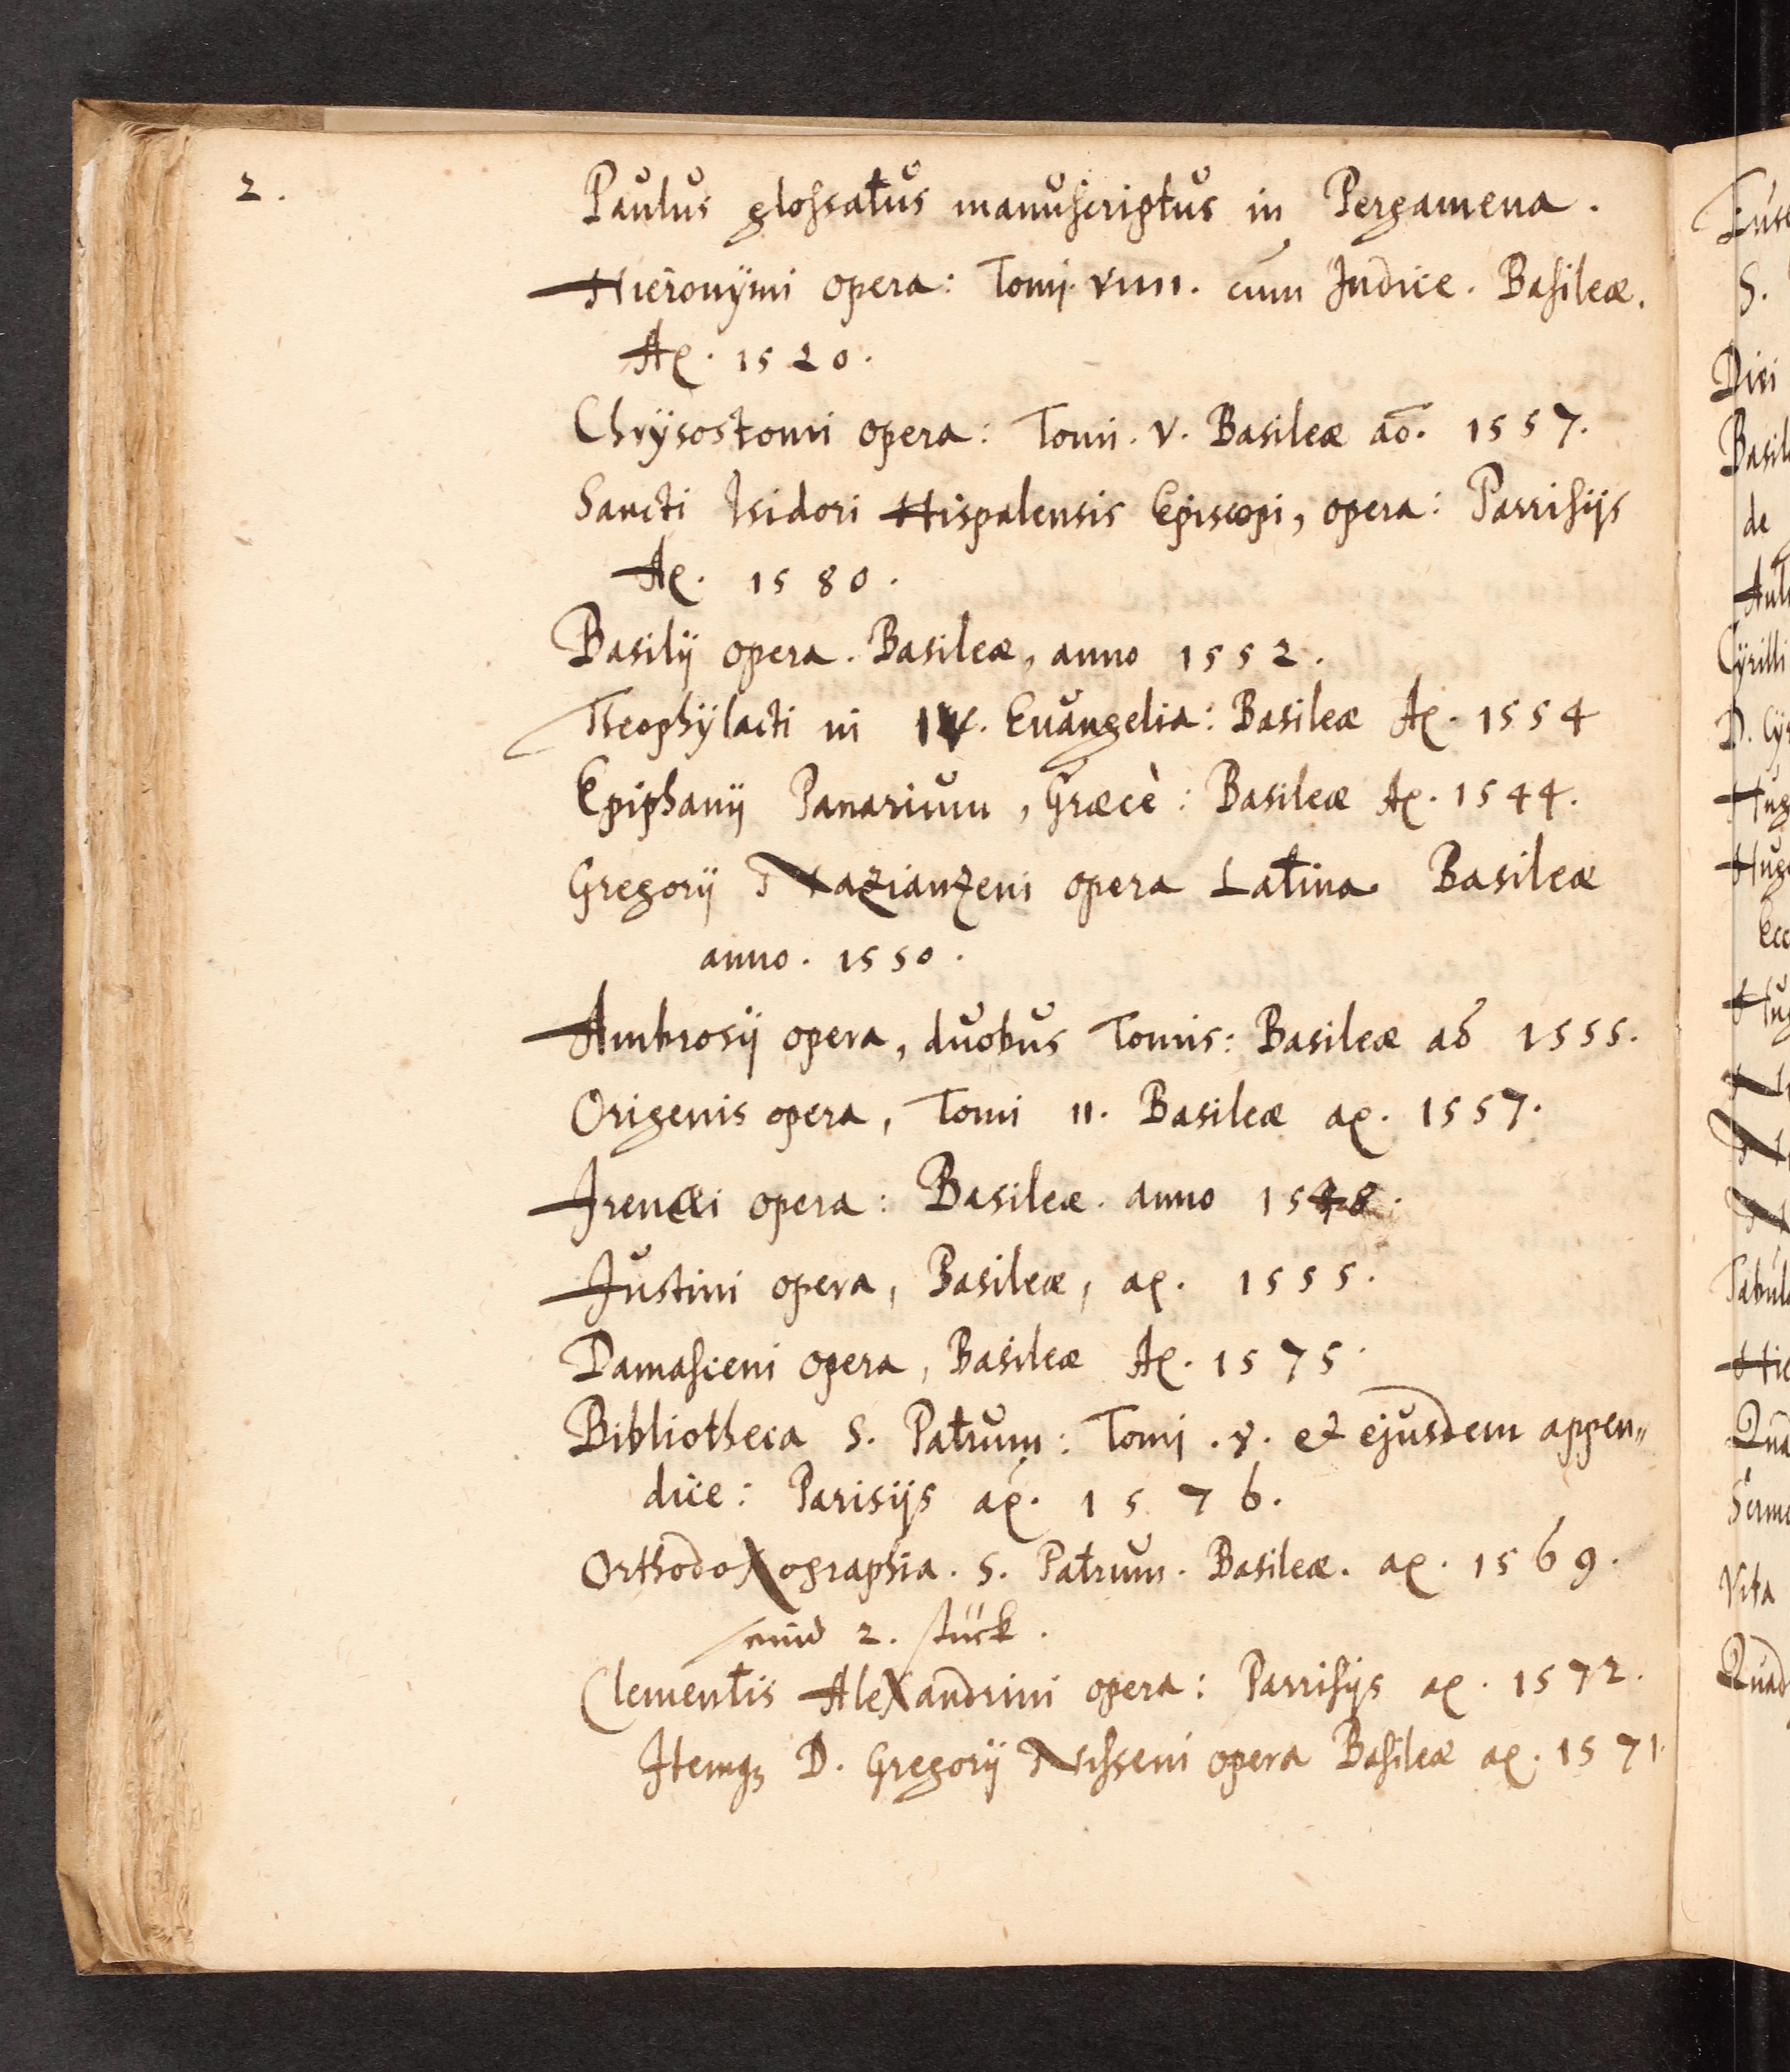 2.
Paulus glossatus manuscriptus in Pergamena.
Hieronÿmi opera: Tomi. VIIII. cum Indice. Basileæ.
Aō. 1520.
Chrÿsostomi opera: Tomi. V. Basileæ aō. 1557.
Sancti Isidori Hispalensis Episcopi, opera: Parrisijs
Aō. 1580.
Basilij opera. Basileæ, anno 1552.
Theophÿlacti in IV. Euangelia: Basileæ Aō. 1554
Epiphanij Panarium, Græcè: Basileæ Aō. 1544.
Gregorij Nazianzeni opera Latina Basileæ
anno. 1550.
Ambrosij opera, duobus Tomis: Basileæ aō 1555.
Origenis opera, Tomi II. Basileæ aō. 1557.
Irenæi opera: Basileæ. anno 1548.
Justini opera, Basileæ, aō. 1555.
Damasceni opera, Basileæ Aō. 1575.
Bibliotheca S. Patrum: Tomi. 8. et ejusdem appen„
dice: Parisijs aō. 1576.
Orthodoxographia. S. Patrum. Basileæ. aō. 1569.
sind 2. stück.
Clementis Alexandrini opera: Parrisijs aō. 1572.
Itemqꝫ D. Gregorij Nisseni opera Basileæ aō. 1571.
Eus
S.
Divi
Basil
de
Cÿrilli
D. Cÿ
Hug
Hug
Ecc
Hug
Tabul
Hie
Qua
Vita
Quad